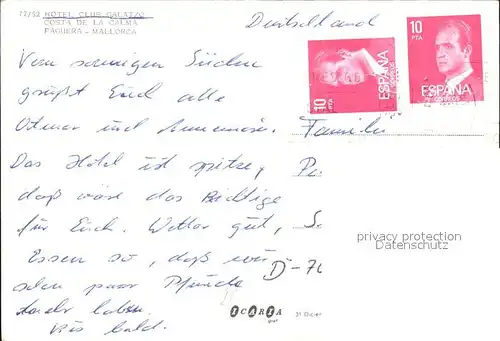 77/52 HOTEL CLUB GALATZO
COSTA DE LA CALMA
PAGUERA - MALLORCA
Deutschland
10
PTA
ESPAÑA
CORREOS
10
PTA
ESPAÑA
CORREOS
Vom sonnigen Süden
grüßt Euch alle
Otmar und Annemarie.
Familie
Das Hotel ist spitze,
daß wäre das Richtige
für Euch. Wetter gut,
Essen so, daß wir
schon paar Pfunde
mehr haben.
Bis bald.
D-70
privacy protection
Datenschutz
ICARIA